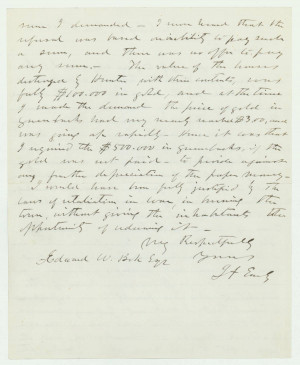 sum I demanded — I never heard that the
refusal was based on inability to pay such
a sum, and there was no offer to pay
any sum. — The value of the houses
destroyed by Hunter, with their contents, was
fully $100.000 in gold, and at the time
I made the demand the price of gold in
Greenbacks had very nearly reached $3.00, and
was going up rapidly — Hence it was that
I required the $500.000 in Greenbacks, if the
gold was not paid — to provide against
any further depreciation of the paper money —
I would have been fully justified by the
laws of retaliation in war in burning the
town, without giving the inhabitants the
opportunity of redeeming it —
Very Respectfully
Yours
Edward W. Bok Esq
J A Early